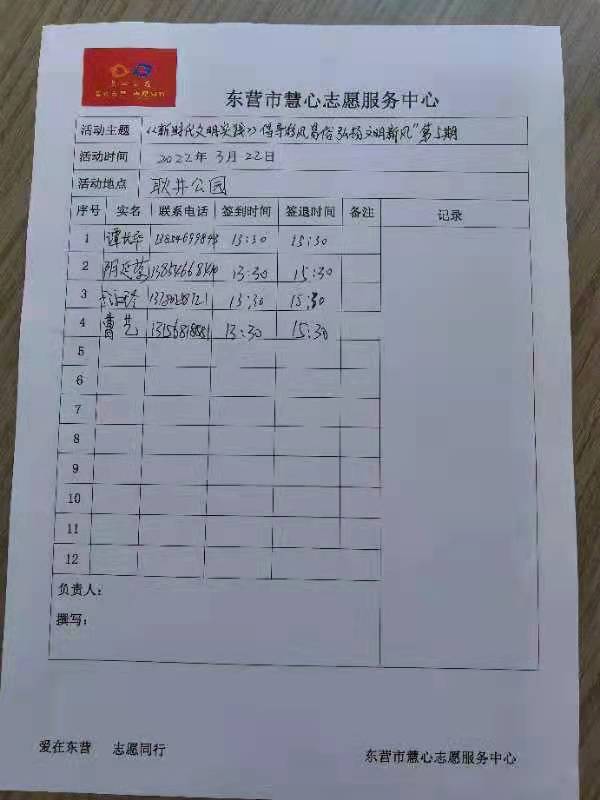 东营市慧心志愿服务中心
活动主题 《新时代文明实践》倡导移风易俗 弘扬文明新风"第上期
活动时间 2022年3月22日
活动地点 耿井公园
序号 实名 联系电话 签到时间 签退时间 备注 记录
1 13:30 15:30
2 13:30 15:30
3 13:30 15:30
4 曹艺 13:30 15:30
5
6
7
8
9
10
11
12
负责人:
撰写:
爱在东营 志愿同行 东营市慧心志愿服务中心